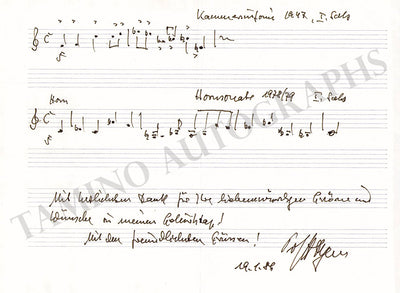 Kammersinfonie 1947, I. Satz
Horn Hornsonate 1978/79 I. Satz
Mit herzlichem Dank für Ihre liebenswürdigen Grüsse und
Wünsche zu meinem Geburtstag!
Mit den freundlichsten Grüssen!
19.1.89
TAMINO AUTOGRAPHS